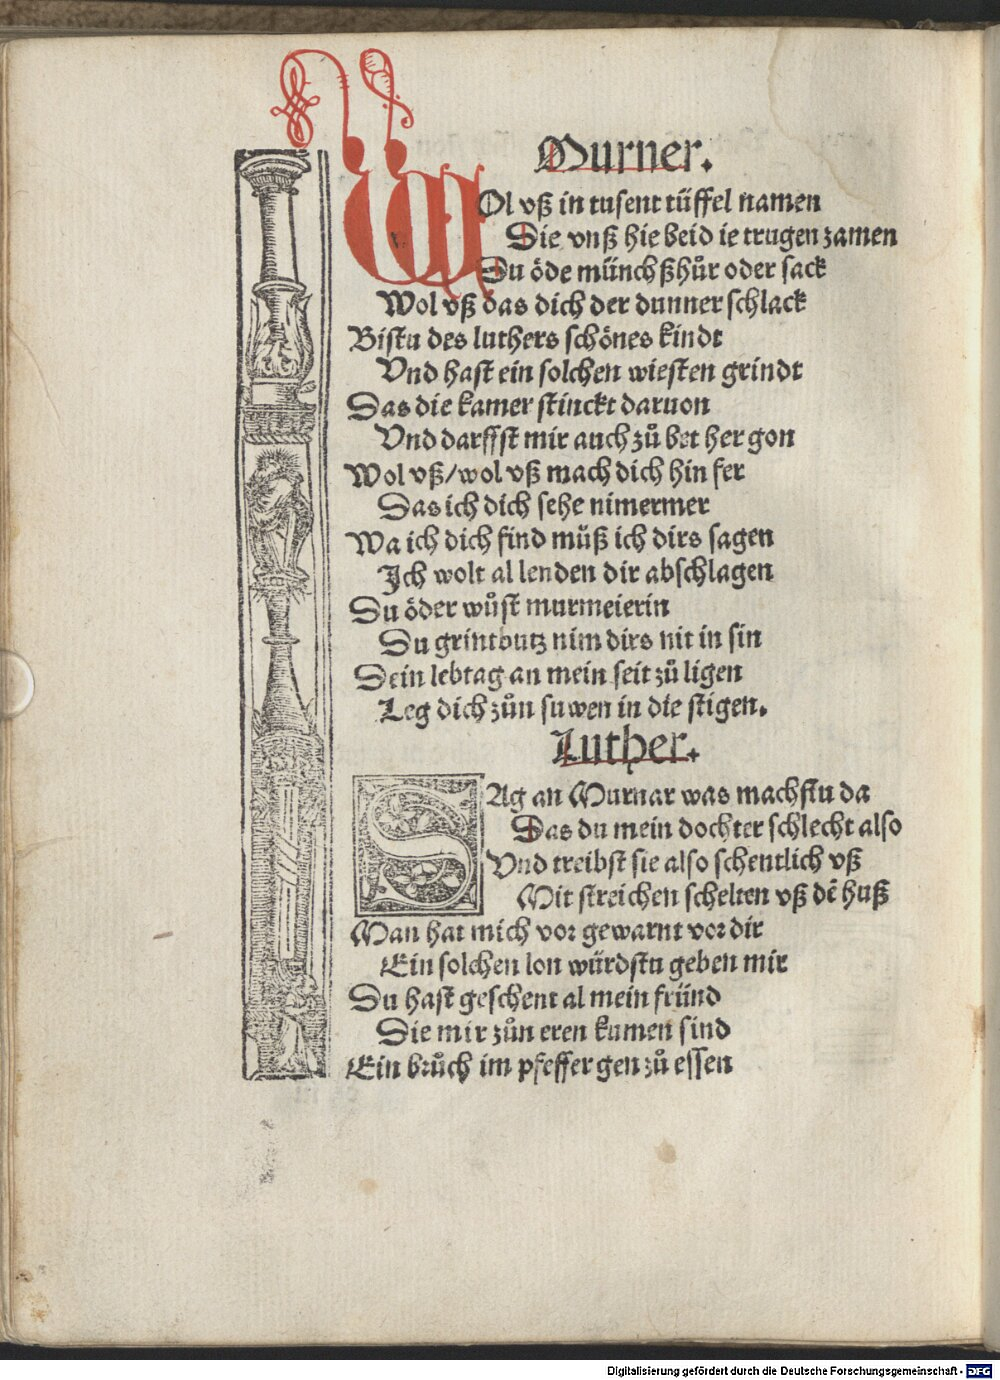 Murner.
WOl vß in tusent tüffel namen
Die vnß hie beid ie trugen zamen
Du öde münchßhůr oder sack
Wol vß das dich der dunner schlack
Bistu des luthers schönes kindt
Vnd hast ein solchen wiesten grindt
Das die kamer stinckt daruon
Vnd darffst mir auch zů bet her gon
Wol vß/wol vß mach dich hin fer
Das ich dich sehe nimermer
Wa ich dich find můß ich dirs sagen
Ich wolt al lenden dir abschlagen
Du öder wůst murmeierin
Du grintbutz nim dirs nit in sin
Dein lebtag an mein seit zů ligen
Leg dich zůn suwen in die stigen.
Luther.
SAg an Murnar was machstu da
Das du mein dochter schlecht also
Vnd treibst sie also schentlich vß
Mit streichen schelten vß dē huß
Man hat mich vor gewarnt vor dir
Ein solchen lon würdstu geben mir
Du hast geschent al mein fründ
Die mir zůn eren kumen sind
Ein brůch im pfeffer gen zů essen
Digitalisierung gefördert durch die Deutsche Forschungsgemeinschaft - DFG